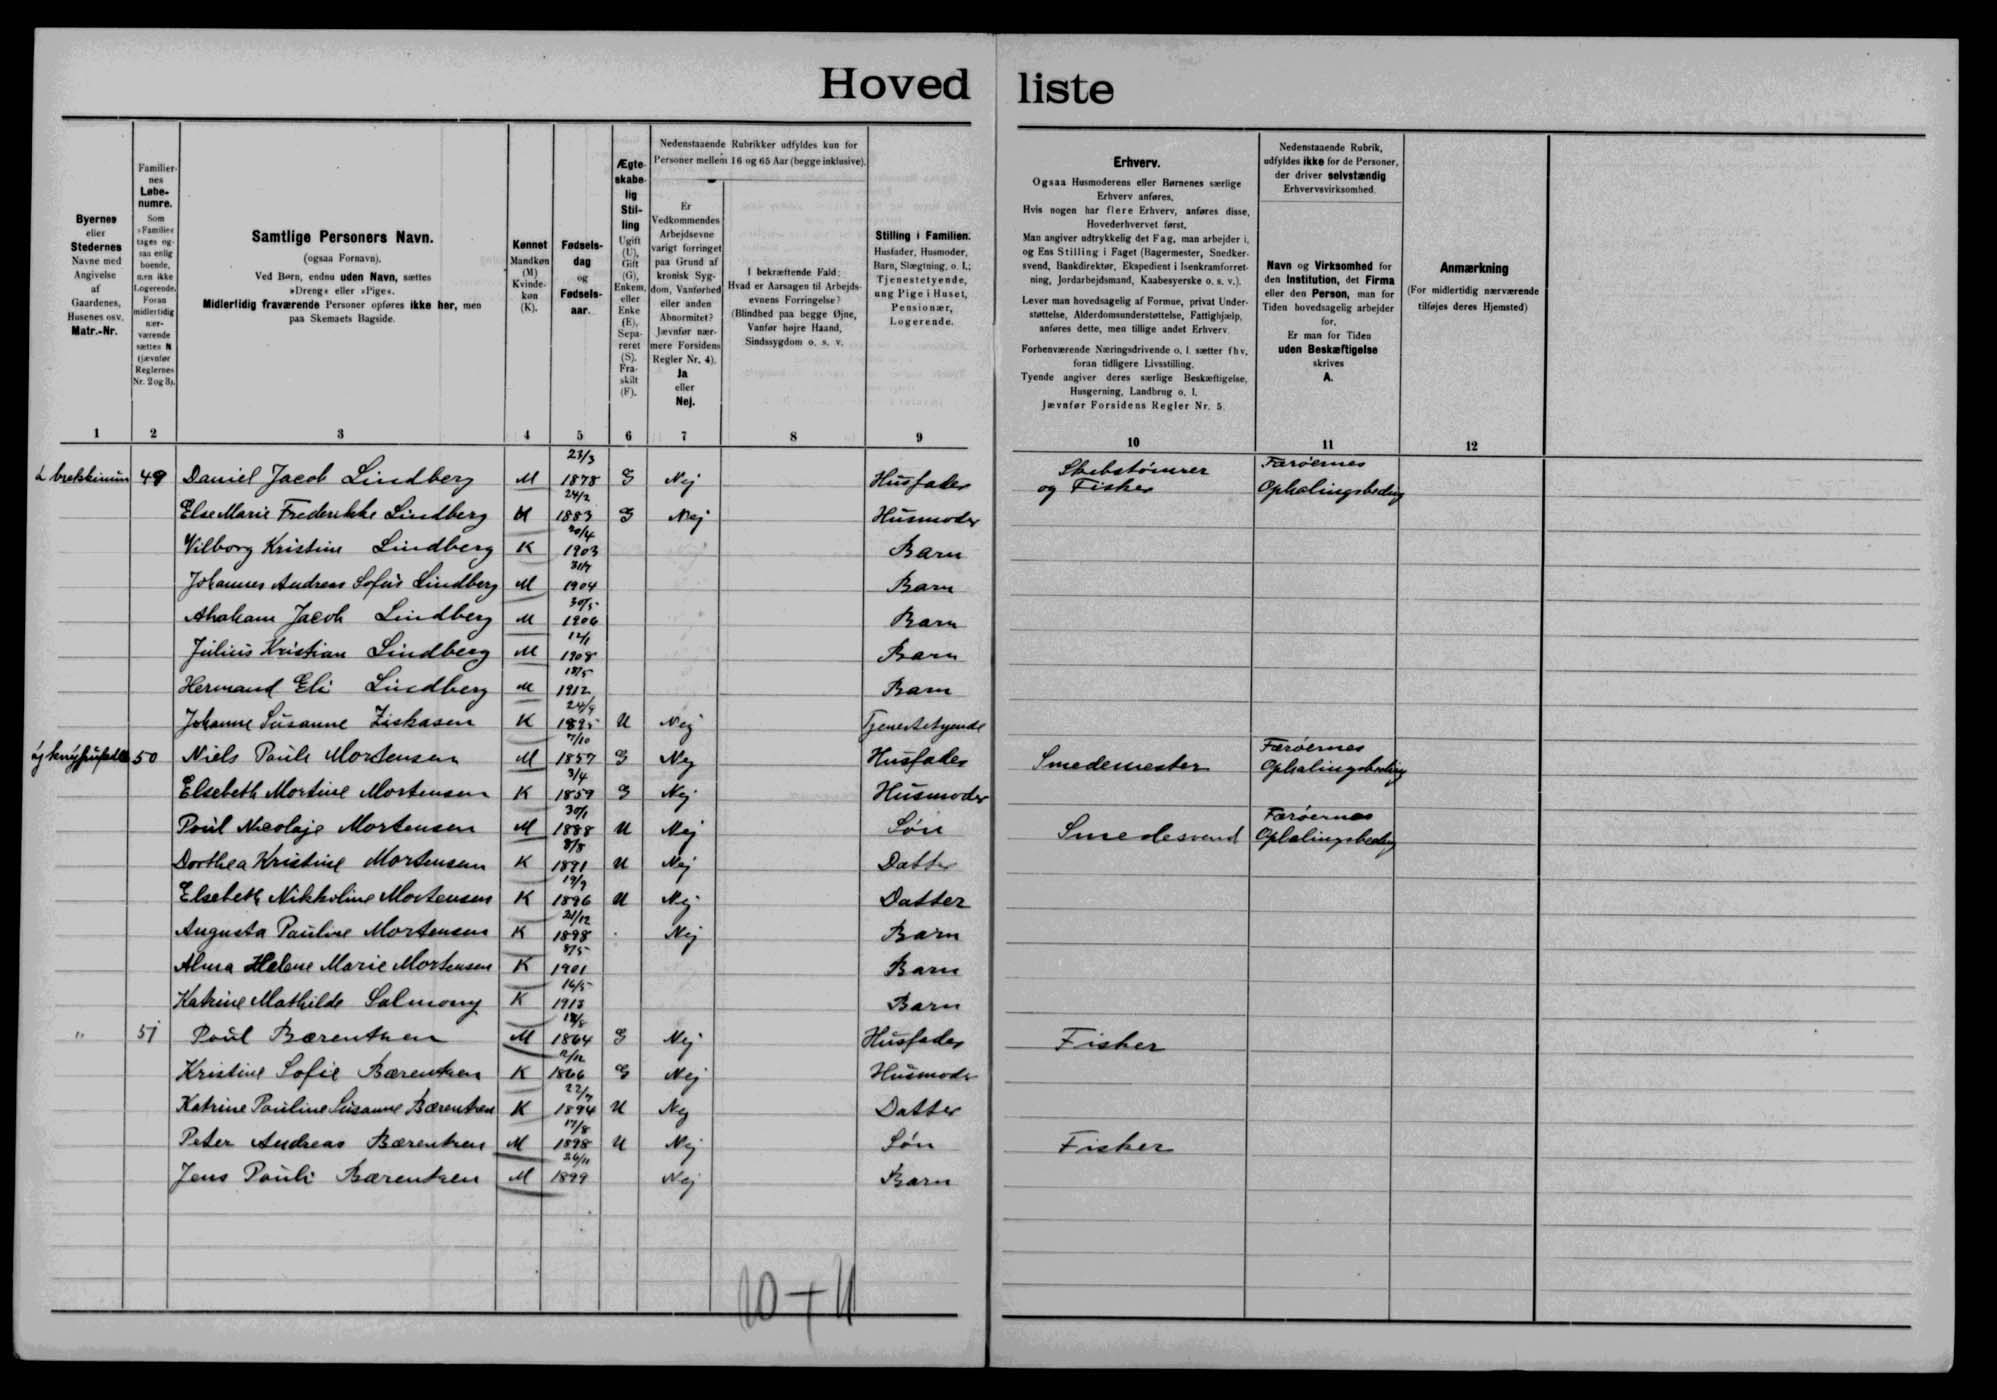 Hoved liste
Byernes
eller
Stedernes
Navne med
Angivelse
af
Gaardenes,
Husenes osv.
Matr.-Nr.
Familier-
nes
Løbe-
numre.
Som
»Familie«
tages og-
saa enlig
boende,
men ikke
Logerende.
Foran
midlertidig
nær-
værende
sættes N
(jævnfør
Reglernes
Nr. 2 og 3).
Samtlige Personers Navn.
(ogsaa Fornavn).
Ved Børn, endnu uden Navn, sættes
»Dreng« eller »Pige«.
Midlertidig fraværende Personer opføres ikke her, men
paa Skemaets Bagside.
Kønnet
Mandkøn
(M)
Kvinde-
køn
(K).
Fødsels-
dag
og
Fødsels-
aar.
Ægte-
skabe-
lig
Stil-
ling
Ugift
(U),
Gift
(G),
Enkem.
eller
Enke
(E),
Sepa-
reret
(S),
Fra-
skilt
(F).
Nedenstaaende Rubrikker udfyldes kun for
Personer mellem 16 og 65 Aar (begge inklusive).
Er
Vedkommendes
Arbejdsevne
varigt forringet
paa Grund af
kronisk Syg-
dom, Vanførhed
eller anden
Abnormitet?
Jævnfør nær-
mere Forsidens
Regler Nr. 4).
Ja
eller
Nej.
I bekræftende Fald:
Hvad er Aarsagen til Arbejds-
evnens Forringelse?
(Blindhed paa begge Øjne,
Vanfør højre Haand,
Sindssygdom o. s. v.
Stilling i Familien.
Husfader, Husmoder,
Barn, Slægtning, o. l.;
Tjenestetyende,
ung Pige i Huset,
Pensionær,
Logerende.
Erhverv.
Ogsaa Husmoderens eller Børnenes særlige
Erhverv anføres.
Hvis nogen har flere Erhverv, anføres disse,
Hovederhvervet først.
Man angiver udtrykkelig det Fag, man arbejder i,
og Ens Stilling i Faget (Bagermester, Snedker-
svend, Bankdirektør, Ekspedient i Isenkramforret-
ning, Jordarbejdsmand, Kaabesyerske o. s. v.).
Lever man hovedsagelig af Formue, privat Under-
støttelse, Alderdomsunderstøttelse, Fattighjælp,
anføres dette, men tillige andet Erhverv.
Forhenværende Næringsdrivende o. l. sætter fhv.
foran tidligere Livsstilling.
Tyende angiver deres særlige Beskæftigelse,
Husgerning, Landbrug o. l.
Jævnfør Forsidens Regler Nr. 5.
Nedenstaaende Rubrik,
udfyldes ikke for de Personer,
der driver selvstændig
Erhvervsvirksomhed.
Navn og Virksomhed for
den Institution, det Firma
eller den Person, man for
Tiden hovedsagelig arbejder
for.
Er man for Tiden
uden Beskæftigelse
skrives
A.
Anmærkning
(For midlertidig nærværende
tilføjes deres Hjemsted)
1 2 3 4 5 6 7 8 9 10 11 12
23/3 Færøernes
brekkinum 49 Daniel Jacob Lindberg M 1878 G Nej Husfader Skibstømrer og Fisker Ophalingsbeding
24/2
Else Marie Frederikke Lindberg K 1883 G Nej Husmoder
20/4
Vilborg Kristine Lindberg K 1903 Barn
31/7
Johannes Andreas Sofus Lindberg M 1904 Barn
30/5
Abraham Jacob Lindberg M 1906 Barn
12/1
Julius Kristian Lindberg M 1908 Barn
18/5
Hermand Eli Lindberg M 1912 Barn
24/9
Johanne Susanne Ziskasen K 1895 U Nej Tjenestetyende
7/10 Færøernes
50 Niels Pauli Mortensen M 1857 G Nej Husfader Smedemester Ophalingsbeding
3/4
Elsebeth Mortine Mortensen K 1859 G Nej Husmoder
30/1 Færøernes
Poul Nicolaje Mortensen M 1888 U Nej Søn Smedesvend Ophalingsbeding
8/8
Dorthea Kristine Mortensen K 1891 U Nej Datter
19/9
Elsebeth Nikkoline Mortensen K 1896 U Nej Datter
21/12
Augusta Pauline Mortensen K 1898 Nej Barn
8/5
Alma Helene Marie Mortensen K 1901 Barn
16/5
Katrine Mathilde Salmony K 1913 Barn
18/8
" 51 Poul Bærentsen M 1864 G Nej Husfader Fisker
2/12
Kristine Sofie Bærentsen K 1866 G Nej Husmoder
22/7
Katrine Pauline Susanne Bærentsen K 1894 U Nej Datter
17/8
Peter Andreas Bærentsen M 1898 U Nej Søn Fisker
26/11
Jens Pauli Bærentsen M 1899 Nej Barn
10+11